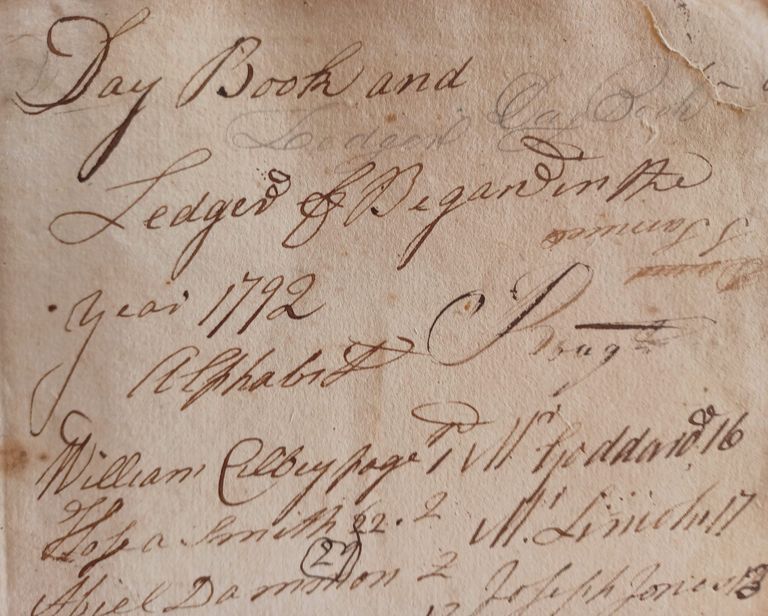 Day Book and
Ledger Day Book
Ledger & Began in the
year 1792
Alphabet
William Cilley page 1 Mr Goddard 16
Hosea Smith 22. 2 Mr Lincoln 17
(27)
Abiel Dammon 2 Joseph Jones